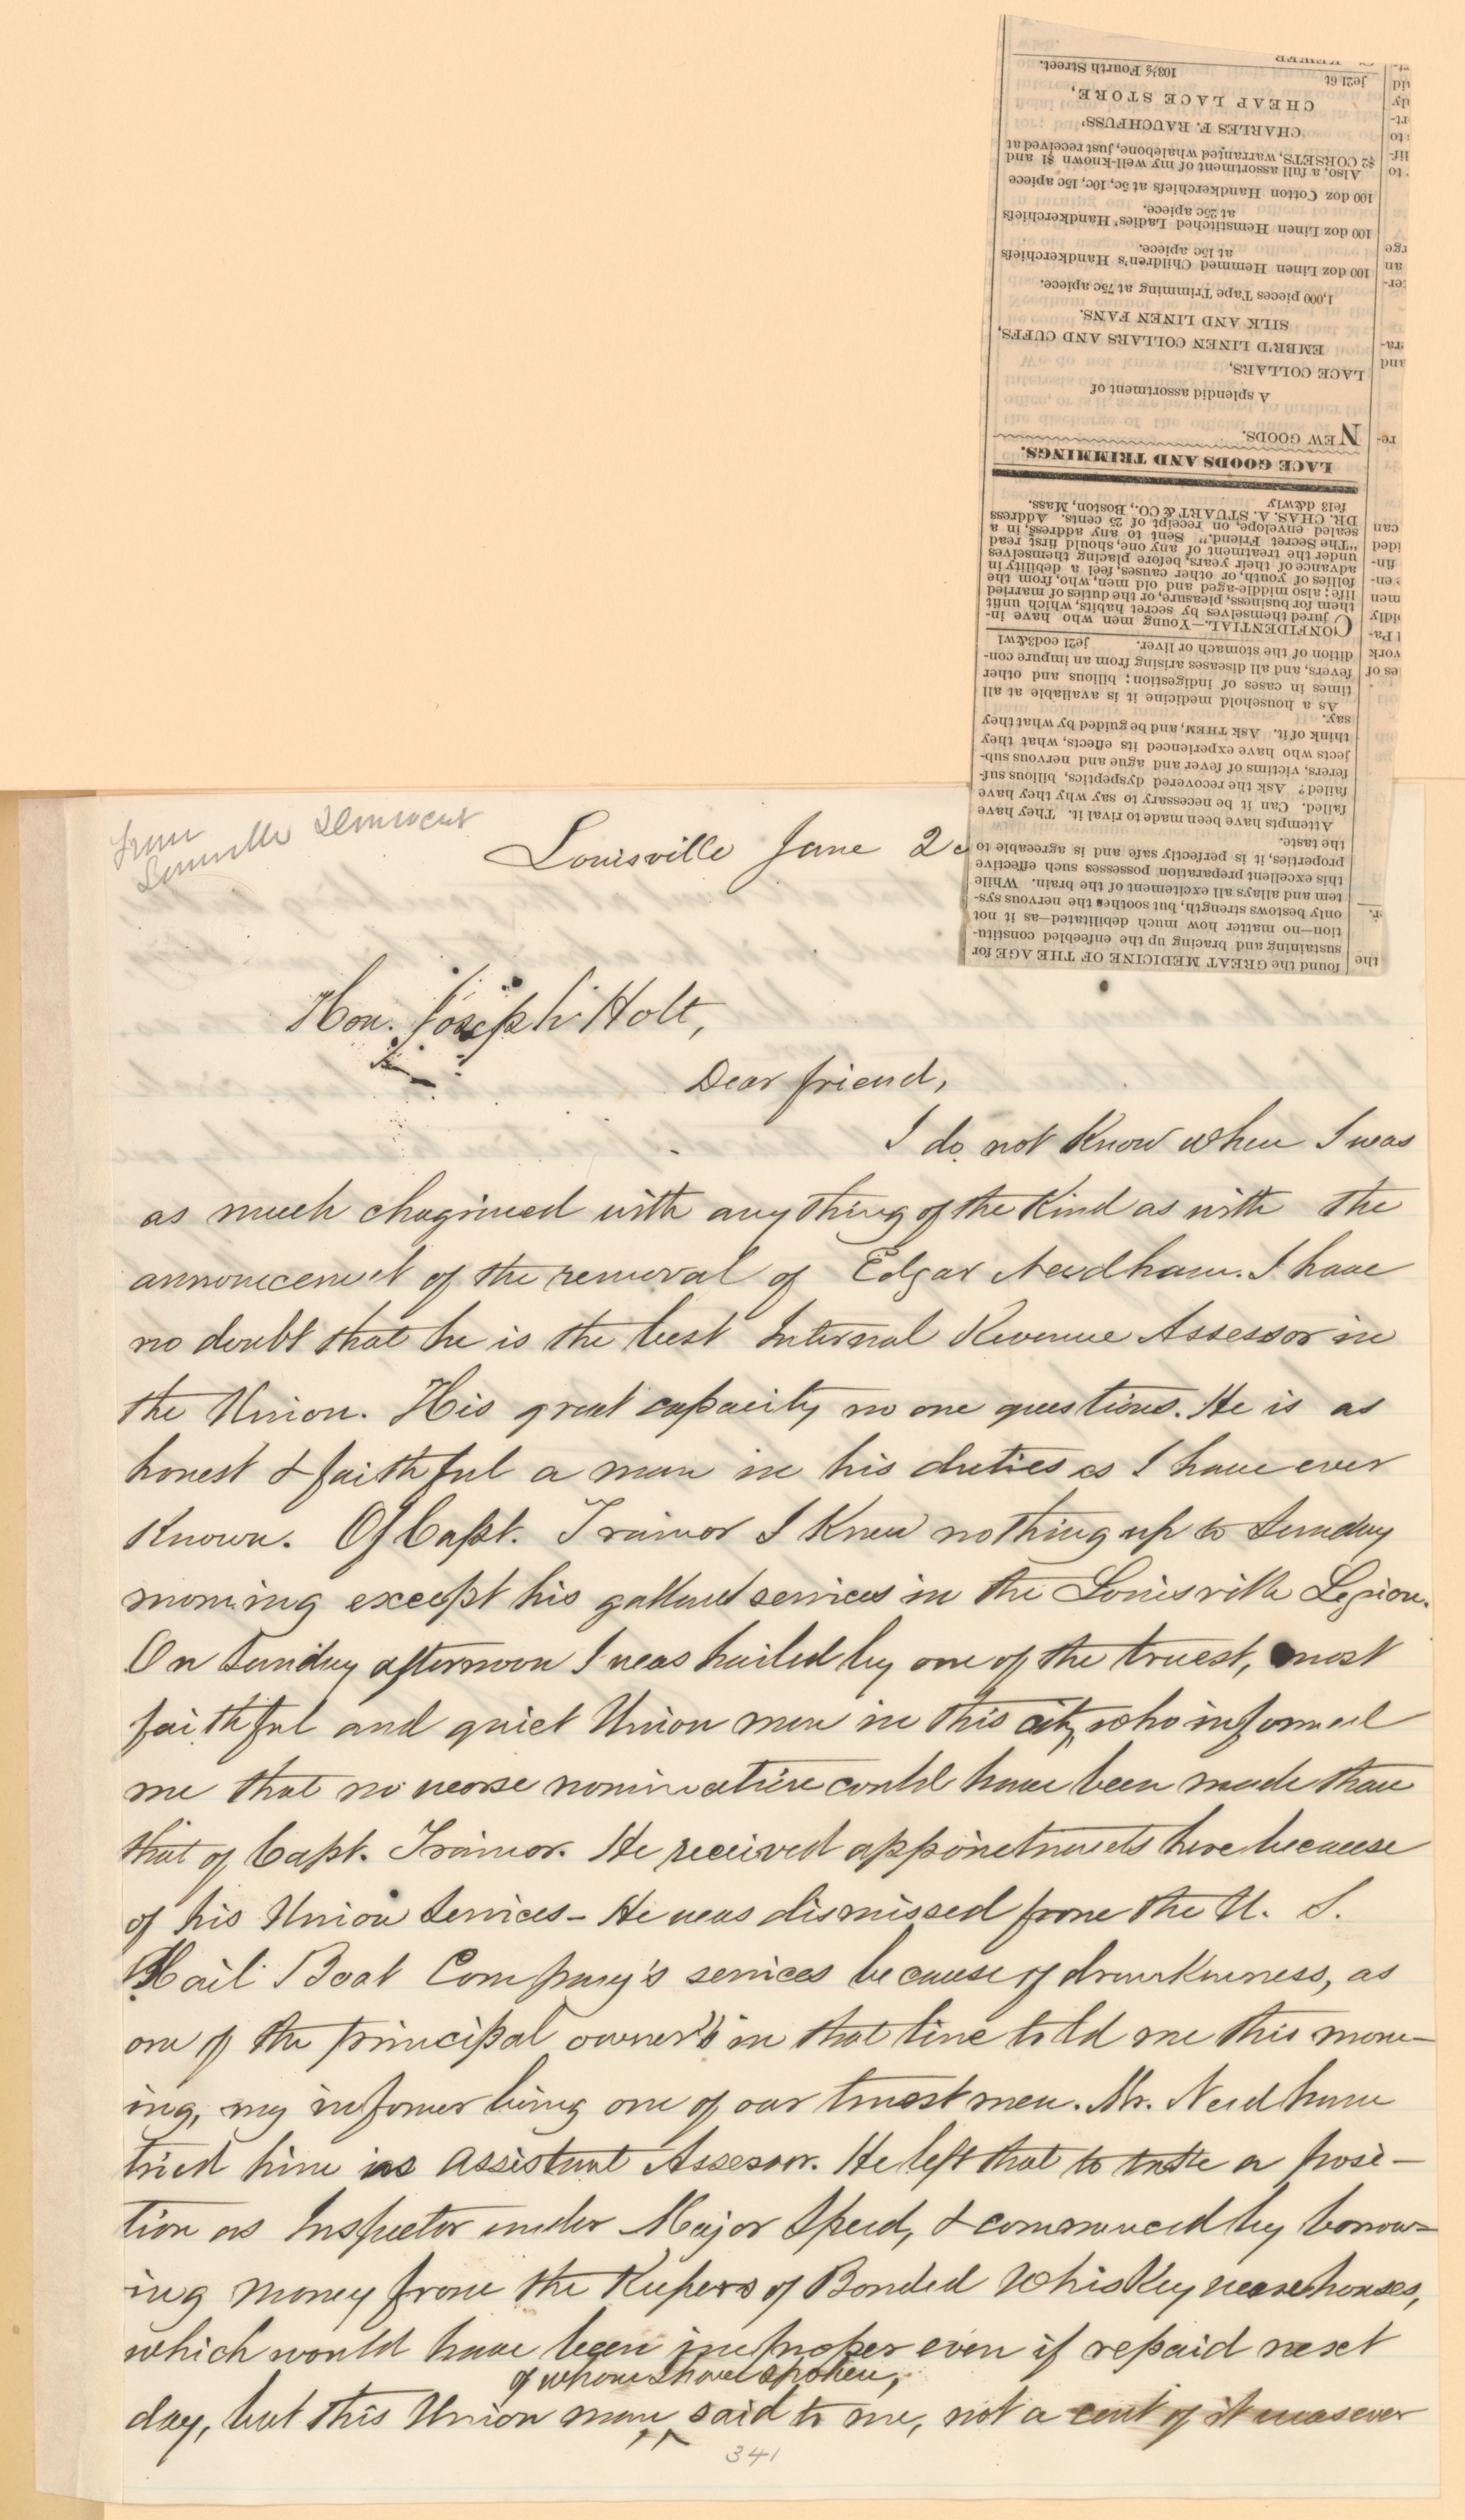 from
Louisville Democrat
Louisville June 2
Hon. Joseph Holt,
Dear friend,
I do not Know when I was
as much chagrined with any thing of the Kind as with the
announcement of the removal of Edgar Needham. I have
no doubt that he is the best Internal Revenue Assessor in
the Union. His great capacity no one questions. He is as
honest & faithful a man in his duties as I have ever
Known. Of Capt. Trainor I Knew nothing up to Sunday
morning except his gallant services in the Louisville Legion.
On Sunday afternoon I was hailed by one of the truest, most
faithful and quiet Union men in this city, who informed
me that no worse nomination could have been made than
that of Capt. Trainor. He received appointments here because
of his Union Services - He was dismissed from the U. S.
Mail Boat Company's services because of drunkenness, as
one of the principal owners in that line told me this morn-
ing, my informer being one of our truest men. Mr. Needham
tried him as Assistant Assessor. He left that to take a posi-
tion as Inspector under Major Speed, & commenced by borrow-
ing money from the Keepers of Bonded Whiskey warehouses,
which would have been improper even if repaid next
of whom I have spoken,
day, but this Union man said to me, not a cent of it was ever
341
found the GREAT MEDICINE OF THE AGE for
sustaining and bracing up the enfeebled constitu-
tion—no matter how much debilitated—as it not
only bestows strength, but soothes the nervous sys-
tem and allays all excitement of the brain. While
this excellent preparation possesses such effective
properties, it is perfectly safe and is agreeable to
the taste.
Attempts have been made to rival it. They have
failed. Can it be necessary to say why they have
failed? Ask the recovered dyspeptics, bilious suf-
ferers, victims of fever and ague and nervous sub-
jects who have experienced its effects, what they
think of it. Ask THEM, and be guided by what they
say.
As a household medicine it is available at all
times in cases of indigestion; bilious and other
fevers, and all diseases arising from an impure con-
dition of the stomach or liver. je21 eod3&w1
CONFIDENTIAL.—Young men who have in-
jured themselves by secret habits, which unfit
them for business, pleasure, or the duties of married
life; also middle-aged and old men, who, from the
follies of youth, or other causes, feel a debility in
advance of their years, before placing themselves
under the treatment of any one, should first read
"The Secret Friend." Sent to any address, in a
sealed envelope, on receipt of 25 cents. Address
DR. CHAS. A. STUART & CO., Boston, Mass.
fe13 d&w1y
LACE GOODS AND TRIMMINGS.
NEW GOODS.
A splendid assortment of
LACE COLLARS,
EMBR'D LINEN COLLARS AND CUFFS,
SILK AND LINEN FANS.
1,000 pieces Tape Trimming at 75c apiece.
100 doz Linen Hemmed Children's Handkerchiefs
at 15c apiece.
100 doz Linen Hemstitched Ladies' Handkerchiefs
at 25c apiece.
100 doz Cotton Handkerchiefs at 5c, 10c, 15c apiece
Also, a full assortment of my well-known $1 and
$2 CORSETS, warranted whalebone, just received at
CHARLES F. RAUCHFUSS'
CHEAP LACE STORE,
je21 6t 103½ Fourth Street.